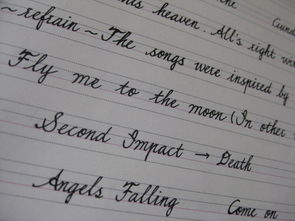 heaven. All's right
~refrain~ The songs were inspired by
Fly me to the moon (In other
Second Impact → Death
Angels Falling Come on